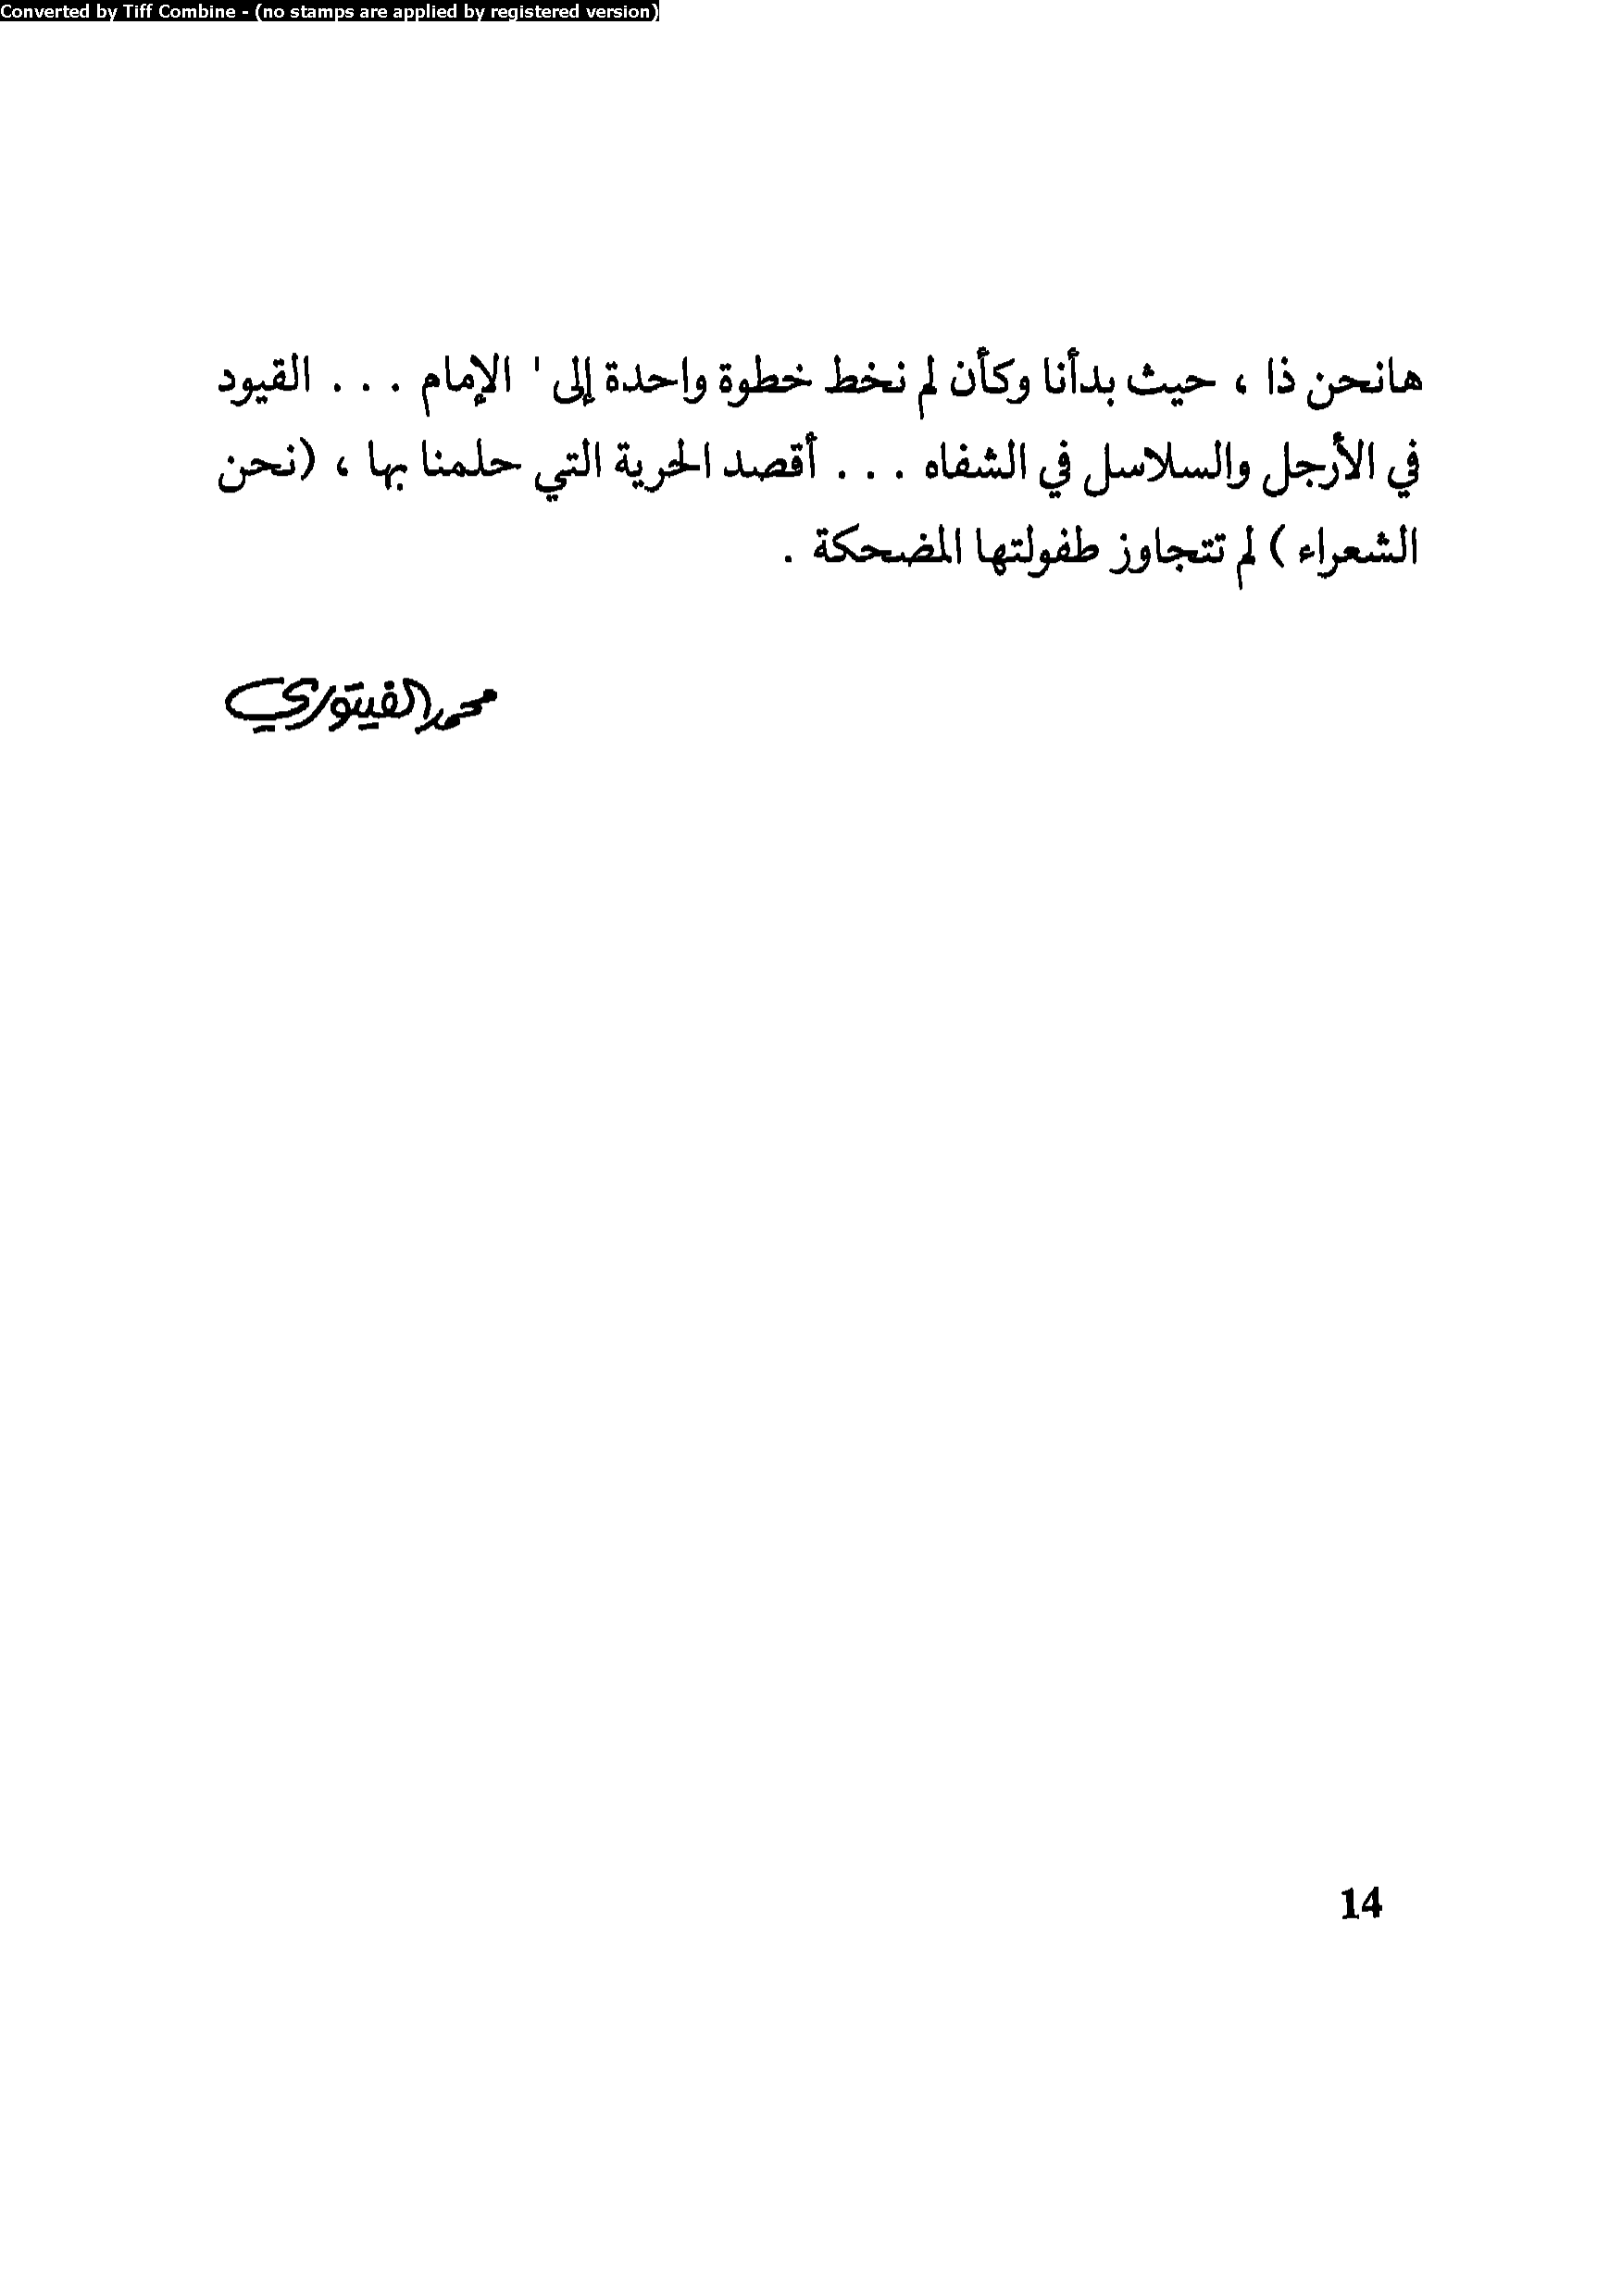 Converted by Tiff Combine - (no stamps are applied by registered version)
هانحن ذا ، حيث بدأنا وكأن لم نخط خطوة واحدة إلى ' الإمام . . . القيود
في الأرجل والسلاسل في الشفاه . . . أقصد الحرية التي حلمنا بها ، (نحن
الشعراء ) لم تتجاوز طفولتها المضحكة .
محمد الفيتوري
14